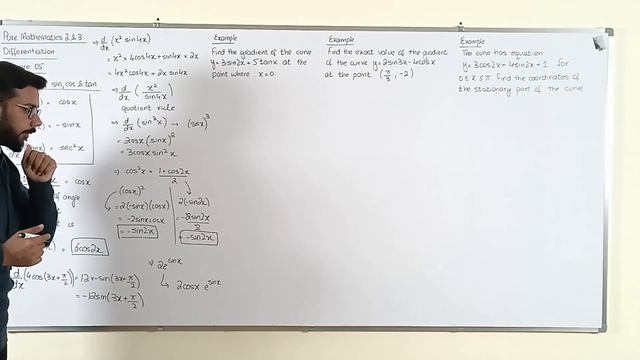 Pure Mathematics 2 & 3
Differentiation
05
sin, cos & tan
= cos x
= -sin x
= sec² x
= cos x
of angle
is
= 6cos2x
d/dx (4cos(3x+π/2)) = 12x-sin(3x+π/2)
= -12sin(3x+π/2)
⇒ d/dx (x² sin4x)
= x² × 4cos4x + sin4x × 2x
= 4x² cos4x + 2x sin4x
⇒ d/dx (x²/sin4x)
quotient rule
⇒ d/dx (sin³x) → (sin x)³
= 3cosx (sinx)²
= 3cosx sin² x
⇒ cos²x = (1 + cos2x)/2
(cos x)²
= 2(-sinx)(cosx)
= -2sinxcosx
= -sin2x
2(-sin2x)
= -2sin2x/2
= -sin2x
⇒ 2e^sinx
↳ 2cosx e^sinx
Example
Find the gradient of the curve
y = 3sin2x + 5tanx at the
point where x = 0
Example
Find the exact value of the gradient
of the curve y = 2sin3x - 4cosx
at the point (π/3, -2)
Example
The curve has equation
y = 3cos2x - 4sin2x - 1 for
0 ≤ x ≤ π. Find the coordinates of
the stationary part of the curve